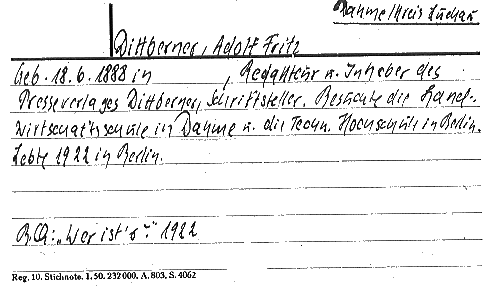 Dahme/Kreis Luckau
Dittberner, Adolf Fritz
Geb. 18.6.1888 in          , Redakteur u. Inheber des
Presseverlages Dittberner, Schriftsteller. Besuchte die Landw.-
wirtschaftsschule in Dahme u. die Techn. Hochschule in Berlin.
Lebte 1922 in Berlin.
B.Q.: „Wer ist's?" 1922
Reg. 10. Stichnote. 1. 50. 232000. A. 803, S. 4062